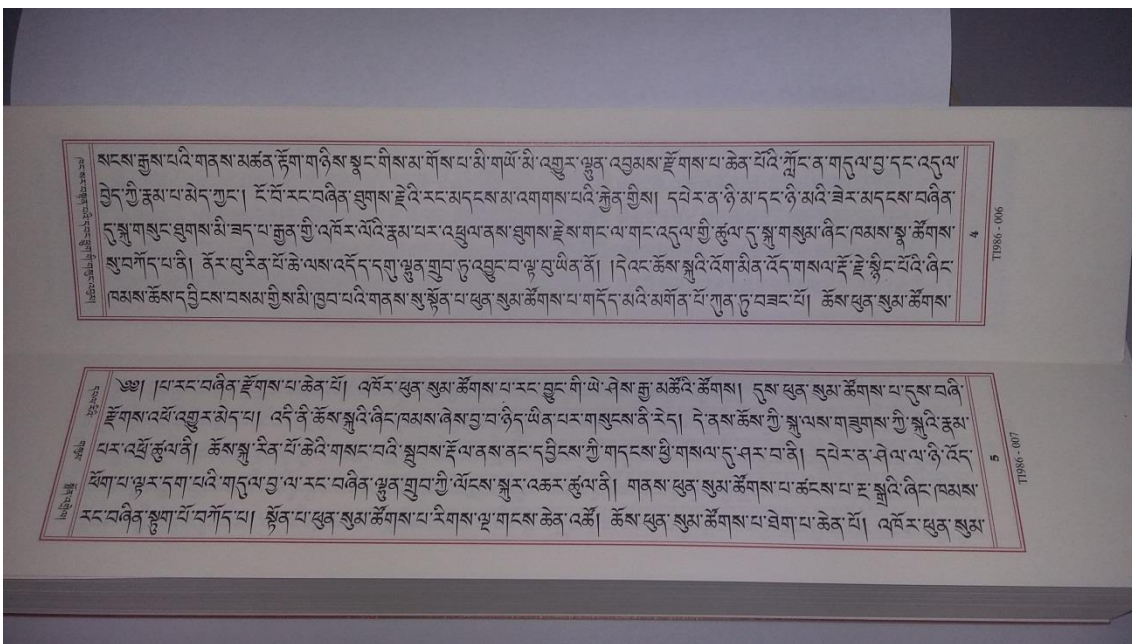 སངས་རྒྱས་པའི་གནས་མཚན་རྟོག་གཉིས་སྣང་གིས་མ་གོས་པ་མི་གཡོ་མི་འགྱུར་ལྷུན་འབྱམས་རྫོགས་པ་ཆེན་པོའི་ཀློང་ན་གདུལ་བྱ་དང་འདུལ་
བྱེད་ཀྱི་རྣམ་པ་མེད་ཀྱང་། ངོ་བོ་རང་བཞིན་ཐུགས་རྗེའི་རང་མདངས་མ་འགགས་པའི་རྐྱེན་གྱིས། དཔེར་ན་ཉི་མ་དང་ཉི་མའི་ཟེར་མདངས་བཞིན་
དུ་སྐུ་གསུང་ཐུགས་མི་ཟད་པ་རྒྱན་གྱི་འཁོར་ལོའི་རྣམ་པར་འཕྲུལ་ནས་ཐུགས་རྗེས་གང་ལ་གང་འདུལ་གྱི་ཚུལ་དུ་སྐུ་གསུམ་ཞིང་ཁམས་སྣ་ཚོགས་
སུ་བཀོད་པ་ནི། ནོར་བུ་རིན་པོ་ཆེ་ལས་འདོད་དགུ་ལྷུན་གྲུབ་ཏུ་འབྱུང་བ་ལྟ་བུ་ཡིན་ནོ། །དེའང་ཆོས་སྐུའི་འོག་མིན་འོད་གསལ་རྡོ་རྗེ་སྙིང་པོའི་ཞིང་
ཁམས་ཆོས་དབྱིངས་བསམ་གྱིས་མི་ཁྱབ་པའི་གནས་སུ་སྟོན་པ་ཕུན་སུམ་ཚོགས་པ་གདོད་མའི་མགོན་པོ་ཀུན་ཏུ་བཟང་པོ། ཆོས་ཕུན་སུམ་ཚོགས་
4
TI986 - 006
༄༅། །པ་རང་བཞིན་རྫོགས་པ་ཆེན་པོ། འཁོར་ཕུན་སུམ་ཚོགས་པ་རང་བྱུང་གི་ཡེ་ཤེས་རྒྱ་མཚོའི་ཚོགས། དུས་ཕུན་སུམ་ཚོགས་པ་དུས་བཞི་
རྫོགས་འཕོ་འགྱུར་མེད་པ། འདི་ནི་ཆོས་སྐུའི་ཞིང་ཁམས་ཞེས་བྱ་བ་ཉིད་ཡིན་པར་གསུངས་ནི་རེད། དེ་ནས་ཆོས་ཀྱི་སྐུ་ལས་གཟུགས་ཀྱི་སྐུའི་རྣམ་
པར་འཕྲོ་ཚུལ་ནི། ཆོས་སྐུ་རིན་པོ་ཆེའི་གསང་བའི་སྦུབས་རྡོལ་ནས་ནང་དབྱིངས་ཀྱི་གདངས་ཕྱི་གསལ་དུ་ཤར་བ་ནི། དཔེར་ན་ཤེལ་ལ་ཉི་འོད་
ཕོག་པ་ལྟར་དག་པའི་གདུལ་བྱ་ལ་རང་བཞིན་ལྷུན་གྲུབ་ཀྱི་ལོངས་སྐུར་འཆར་ཚུལ་ནི། གནས་ཕུན་སུམ་ཚོགས་པ་ཚངས་པ་རྔ་སྒྲའི་ཞིང་ཁམས་
རང་བཞིན་སྟུག་པོ་བཀོད་པ། སྟོན་པ་ཕུན་སུམ་ཚོགས་པ་རིགས་ལྔ་གངས་ཆེན་འཚོ། ཆོས་ཕུན་སུམ་ཚོགས་པ་ཐེག་པ་ཆེན་པོ། འཁོར་ཕུན་སུམ་
5
TI986 - 007